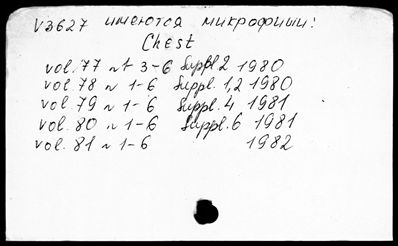 V3627 имеются микрофиши:
Chest
vol. 77 n 1 3-6 Suppl 2 1980
vol 78 n 1-6 Suppl. 1,2 1980
vol. 79 n 1-6 Suppl. 4 1981
vol. 80 n 1-6 Suppl. 6 1981
vol. 81 n 1-6 1982